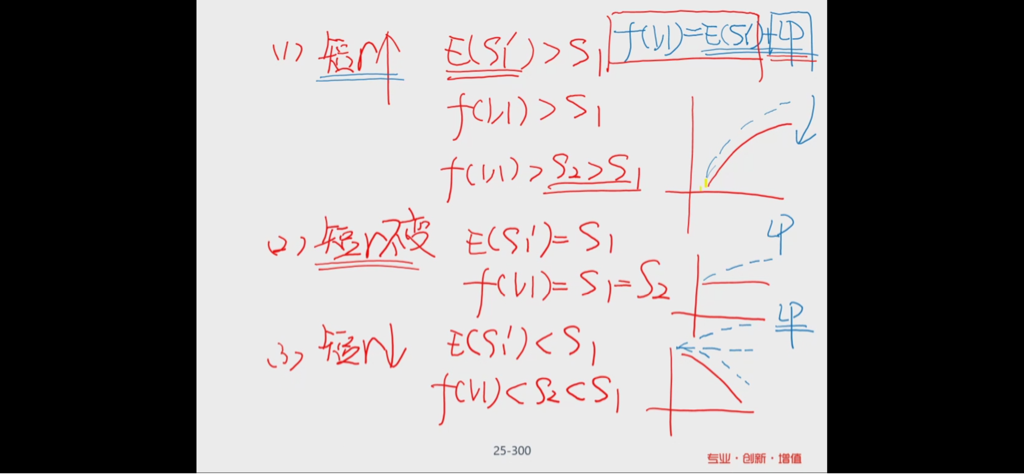 (1) 短r↑ E(S₁')>S₁ f(1,1)=E(S₁')+LP
f(1,1)>S₁
f(1,1)>S₂>S₁
(2) 短r不变 E(S₁')=S₁ LP
f(1,1)=S₁=S₂
LP
(3) 短r↓ E(S₁')<S₁
f(1,1)<S₂<S₁
25-300
专业·创新·增值